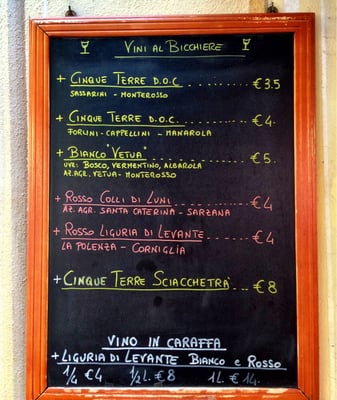 VINI AL BICCHIERE
+ CINQUE TERRE D.O.C ........ € 3.5
SASSARINI - MONTEROSSO
+ CINQUE TERRE D.O.C. ....... € 4.
FORLINI - CAPPELLINI - MANAROLA
+ BIANCO "VETUA" ........ € 5.
UVE: BOSCO, VERMENTINO, ALBAROLA
AZ. AGR. VETUA - MONTEROSSO
+ ROSSO COLLI DI LUNI ........ € 4
AZ. AGR. SANTA CATERINA - SARZANA
+ ROSSO LIGURIA DI LEVANTE ...... € 4
LA POLENZA - CORNIGLIA
+ CINQUE TERRE SCIACCHETRÀ .... € 8
VINO IN CARAFFA
+ LIGURIA DI LEVANTE BIANCO e ROSSO
1/4 € 4 1/2 L. € 8 1 L. € 14.